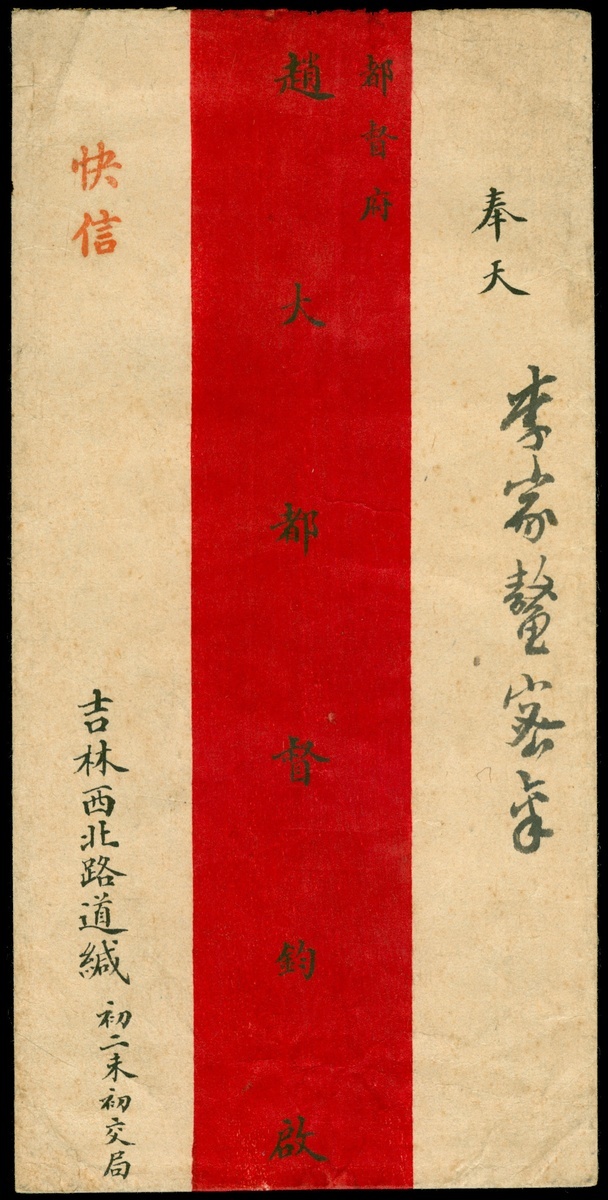 奉天
李家鏊密稟
都督府
趙大都督鈞啟
快信
吉林西北路道緘
初二未初交局